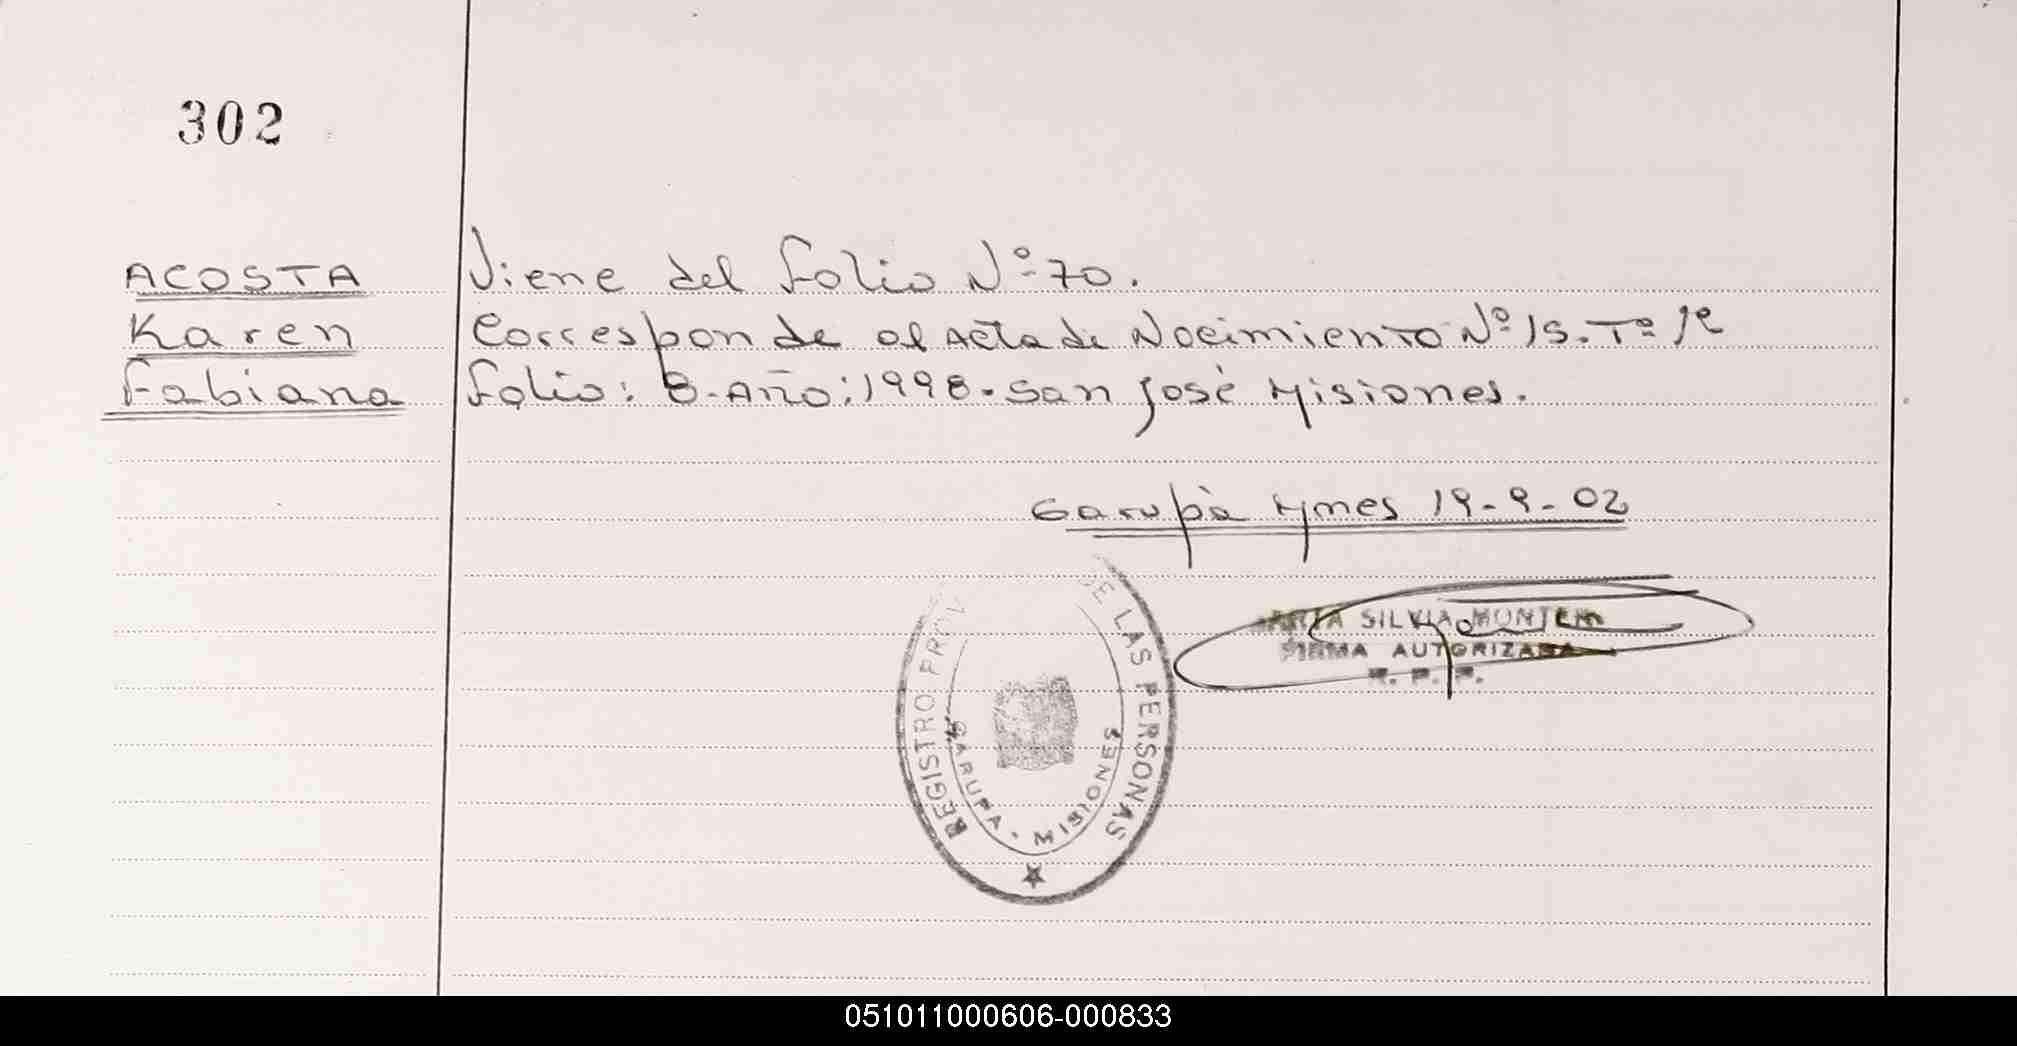 302
ACOSTA
Karen
Fabiana
Viene del Folio Nº 70.
Corresponde al Acta de Nacimiento Nº 15. Tº 1º
Folio: 8. Año: 1998. San José Misiones.
Garupà Mnes 19-9-02
SILVIA
FIRMA AUTORIZADA
R. P. P.
REGISTRO PROV DE LAS PERSONAS
GARUPA · MISIONES
051011000606-000833